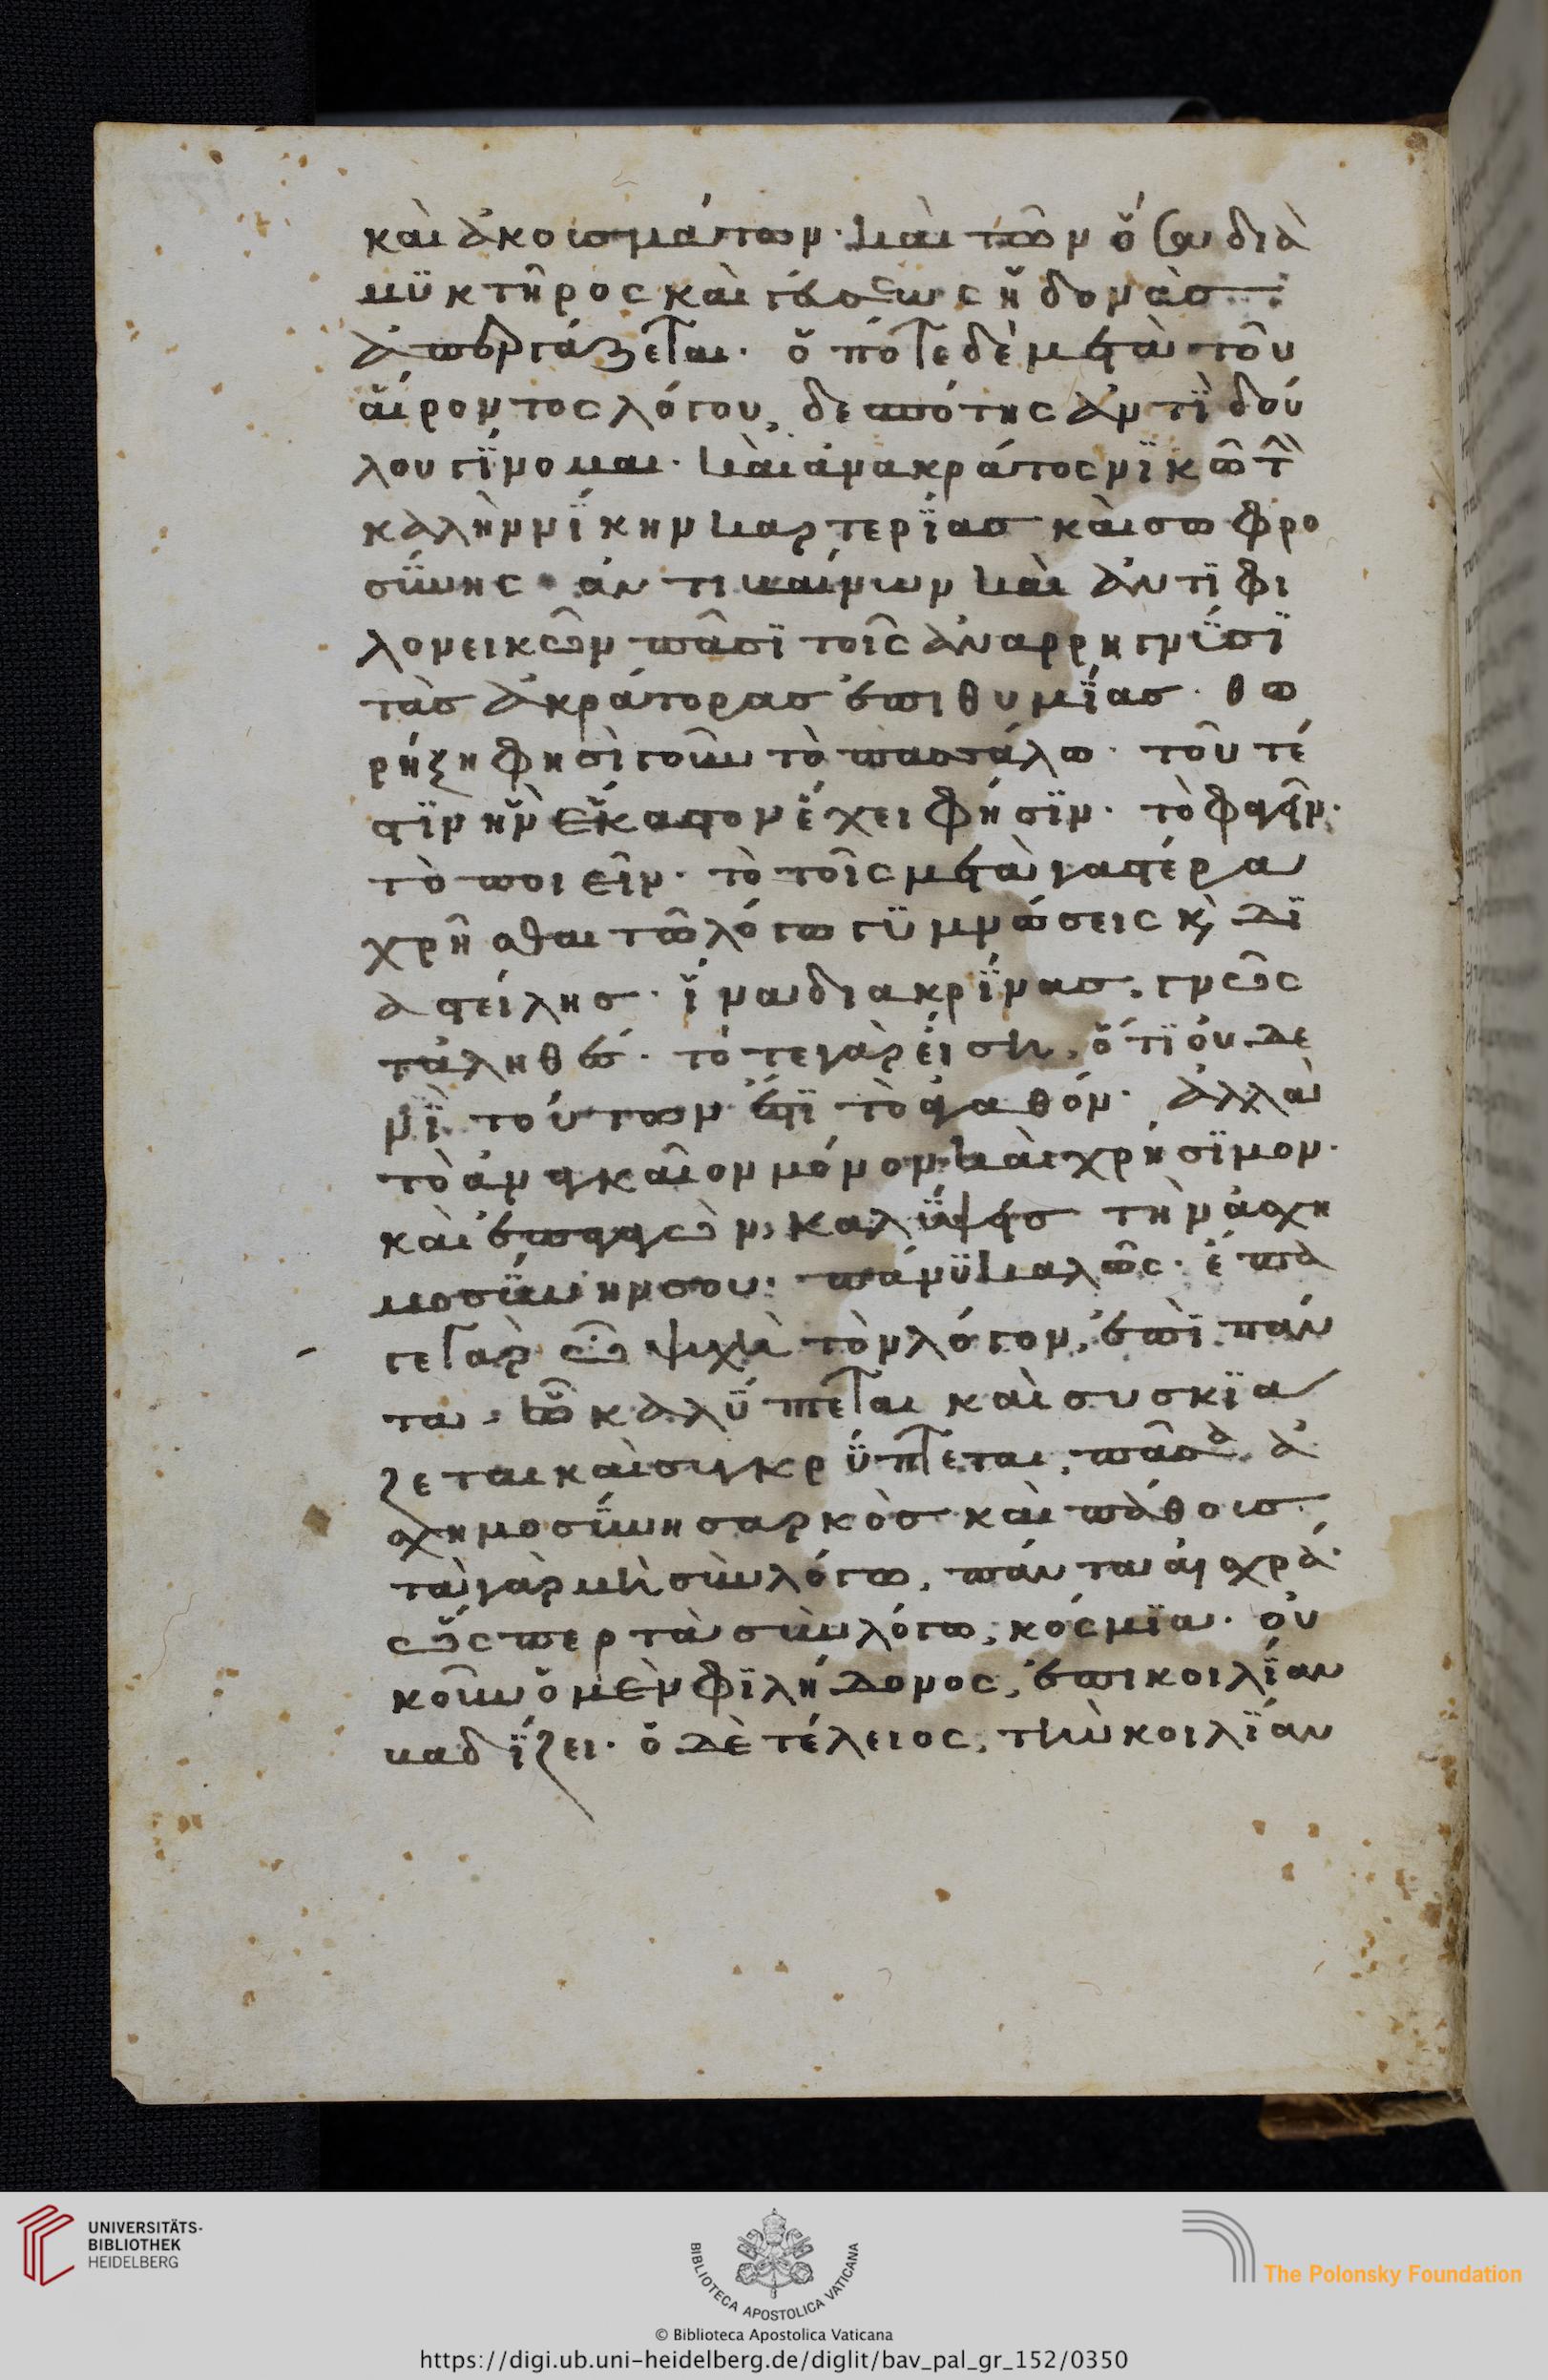 καὶ ἀκουσμάτων· καὶ τῶν ὅσα διὰ
μϋκτῆρος καὶ γεύσεως ἡδονὰς
ἀπεργάζεται· ὁπότε δὲ μετὰ τοῦ
αἵροντος λόγου, δεσπότης ἀντῒ δού
λου γΐνομαι· καὶ ἀνακράτος νϊκῶ τὴν
καλὴν νΐκην καρτερΐας καὶ σωφρο
σΰνης ἀντιβαίνων καὶ ἀντϊφι
λονεικῶν πᾶσϊ τοῖς ἀναρρηγνῦσϊ
τὰς ἀκράτορας ἐπιθυμΐας· θω
ρήξη φησὶ γοῦν τὸ πασσάλω· τουτέ
στϊν ἣν ἕκαστον ἔχει φήσϊν· τὸ φαγεῖν·
τὸ ποιεῖν· τὸ τοῖς μετὰ γαστέρα
χρῆσθαι τῶ λόγω γϋμνώσεις κ, δϊ
αστείλης· ἵνα διακρΐνας, γνῶς
τἀληθές· τότε γὰρ εἴση, ὅτϊ οὐδε
νῒ τούτων ἐστῒ τὸ ἀγαθόν· ἀλλὰ
τὸ ἀναγκαῖον μόνον καὶ χρήσϊμον·
καὶ ἐπαγαγὼν, καλΰψης τὴν ἀσχη
μοσΰνην σου· πάνϋ καλῶς· ἔπα
γε γὰρ ὦ ψυχὴ τὸν λόγον, ἐπῒ πάν
τα, ὧ καλΰπτεται καὶ συσκϊα
ζεται καὶ συγκρΰπτεται, πᾶσα ἀ
σχημοσΰνη σαρκὸς καὶ πάθους
τὰ γὰρ μὴ σὺν λόγω, πάντα αἰσχρά·
ὥσπερ τὰ σὺν λόγω, κόσμϊα· οὐ
κοῦν ὁ μὲν φϊλήδονος, ἐπι κοιλΐαν
βαδΐζει· ὁ δὲ τέλειος, τὴν κοιλΐαν
UNIVERSITÄTS-
BIBLIOTHEK
HEIDELBERG
BIBLIOTECA APOSTOLICA VATICANA
The Polonsky Foundation
© Biblioteca Apostolica Vaticana
https://digi.ub.uni-heidelberg.de/diglit/bav_pal_gr_152/0350